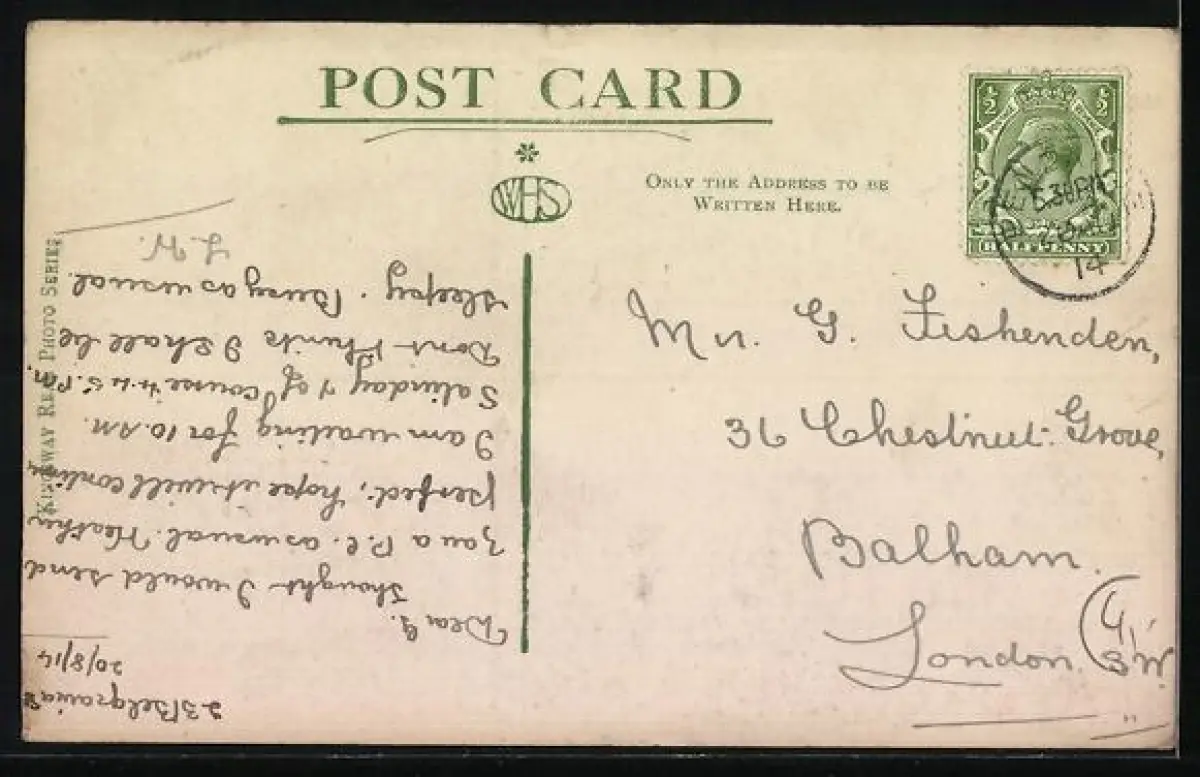 POST CARD
WHS
ONLY THE ADDRESS TO BE
WRITTEN HERE.
½ ½
HALFPENNY
5.30 PM
14
KINGSWAY REAL PHOTO SERIES.
Mr. G. Fishenden,
36 Chestnut Grove,
Balham.
London. S.W.
23 Belgravia
20/8/14
Dear G.
Thought I would send
you a P.C. as usual.
perfect, hope it will
I am waiting for 10. A.M.
Saturday & of course 4.45. P.M.
Dont think I shall be
sleepy. Busy as usual.